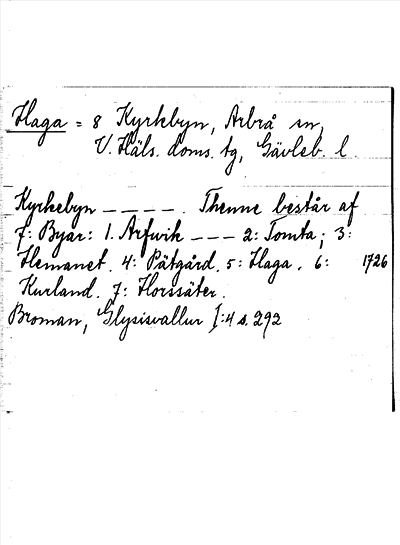 Haga = 8 Kyrkbyn, Arbrå sn,
V. Häls. doms. tg, Gävleb. l.
Kyrkebyn – – – –. Thenne består af
7: Byar: 1. Arfwik – – – 2: Tomta; 3:
Hemanet. 4: Pätgård. 5: Haga. 6: 1726
Kurland. 7: Horssäter.
Broman, Glysisvallur I:4 s. 292